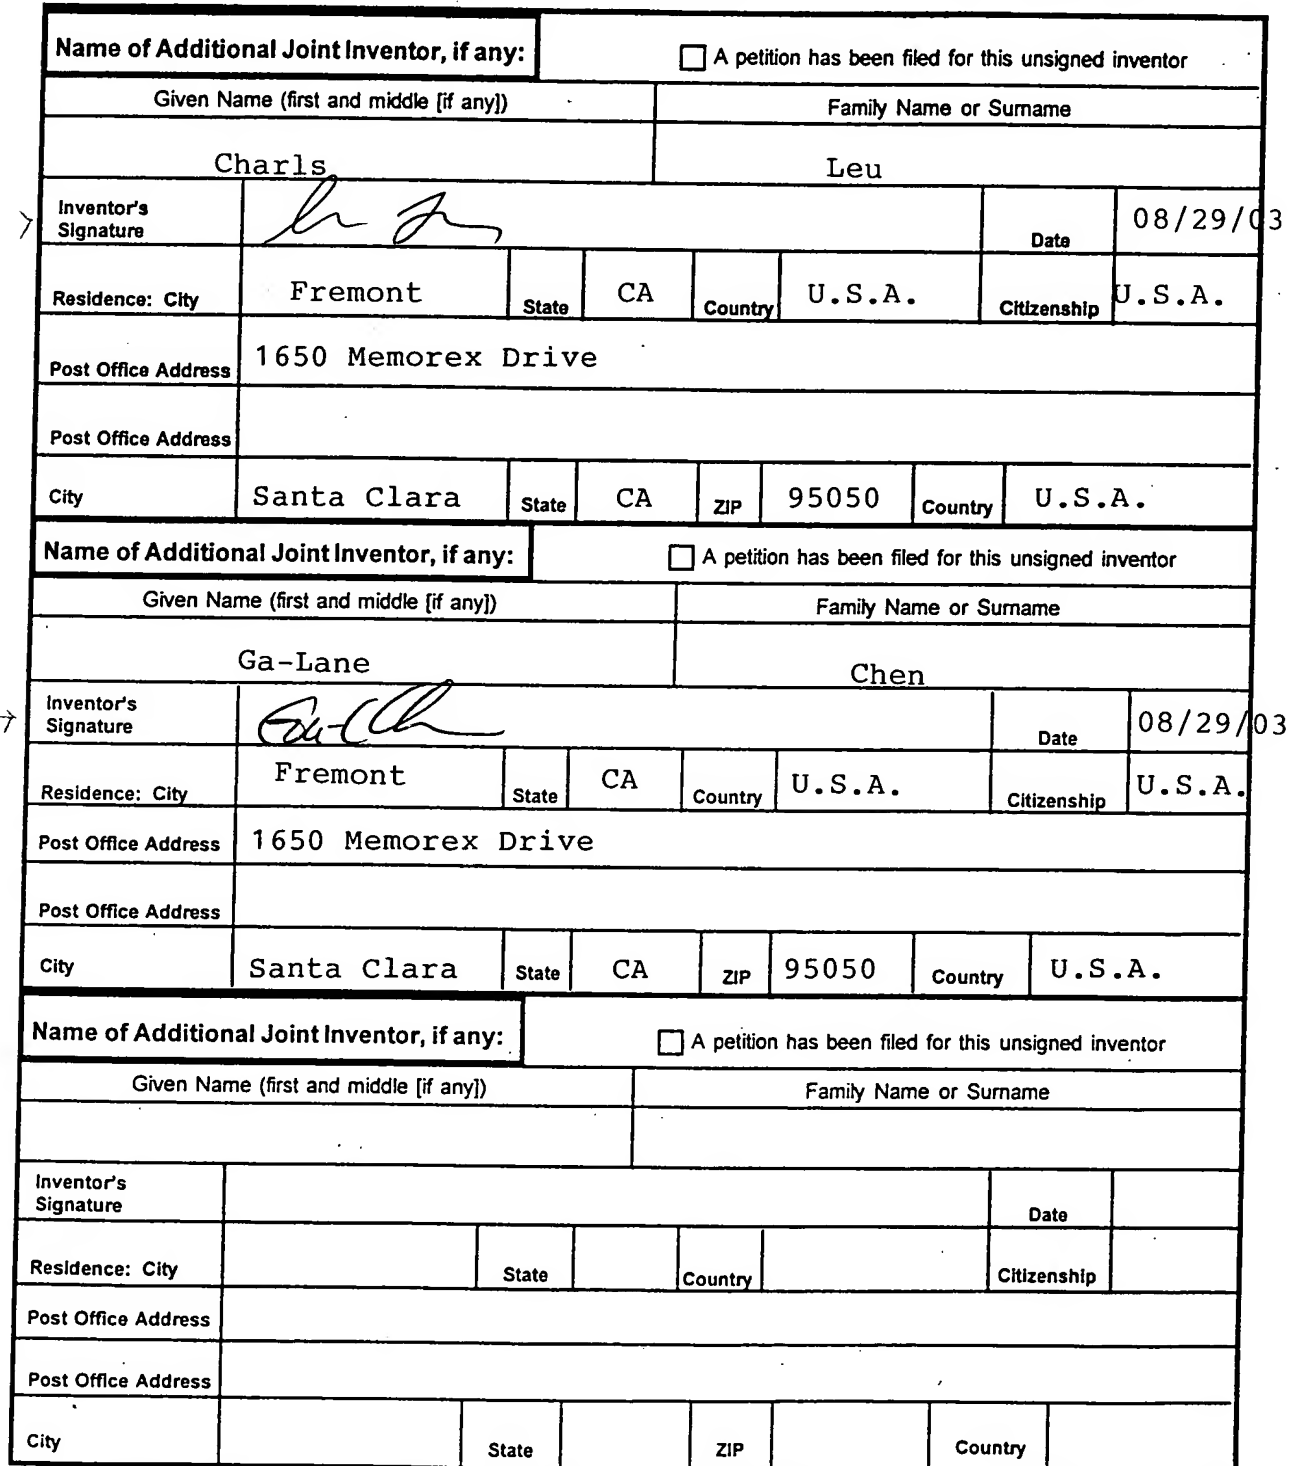 Name of Additional Joint Inventor, if any: A petition has been filed for this unsigned inventor
Given Name (first and middle [if any]) Family Name or Surname
Charls Leu
Inventor's
Signature Date 08/29/03
Residence: City Fremont State CA Country U.S.A. Citizenship U.S.A.
Post Office Address 1650 Memorex Drive
Post Office Address
City Santa Clara State CA ZIP 95050 Country U.S.A.
Name of Additional Joint Inventor, if any: A petition has been filed for this unsigned inventor
Given Name (first and middle [if any]) Family Name or Surname
Ga-Lane Chen
Inventor's
Signature Date 08/29/03
Residence: City Fremont State CA Country U.S.A. Citizenship U.S.A.
Post Office Address 1650 Memorex Drive
Post Office Address
City Santa Clara State CA ZIP 95050 Country U.S.A.
Name of Additional Joint Inventor, if any: A petition has been filed for this unsigned inventor
Given Name (first and middle [if any]) Family Name or Surname
Inventor's
Signature Date
Residence: City State Country Citizenship
Post Office Address
Post Office Address
City State ZIP Country